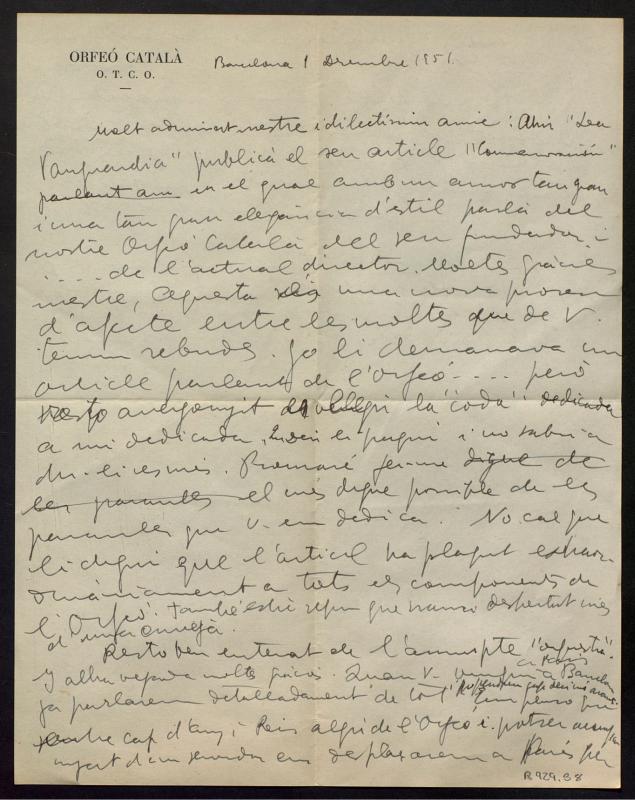 ORFEÓ CATALÀ
O. T. C. O.
Barcelona 1 Desembre 1951.
Molt admirat mestre i dilectíssim amic: Ahir "La
Vanguardia" publicà el seu article "Conmemoración"
parlant am en el qual amb un amor tan gran
i una tan gran elegància d'estil parla del
nostre Orfeó Català del seu fundador i
..... de l'actual director. Moltes gràcies
mestre, Aquesta és una nova prova
d'afecte entre les moltes que de V.
tenim rebudes. Jo li demanava un
article parlant de l'Orfeó..... però
resto avergonyit al llegir la "coda" dedicada
a mi dedicada, Deu li pagui i no sabria
dir-li res més. Procuraré fer-me digne de
les paraules el més digne possible de les
paraules que V. em dedica. No cal que
li digui que l'article ha plagut extraor-
dinàriament a tots els components de
l'Orfeó. També estic segur que haurà despertat més
d'una enveja.
Resto ben enterat de l'assumpte "orquestra".
I altra vegada moltes gràcies. Quan V. vingui a Barcelona
ja parlarem detalladament de tot
cap d'any i Reis algú de l'Orfeó i potser
acompanyat d'un ens desplaçarem a París per
R 929.38